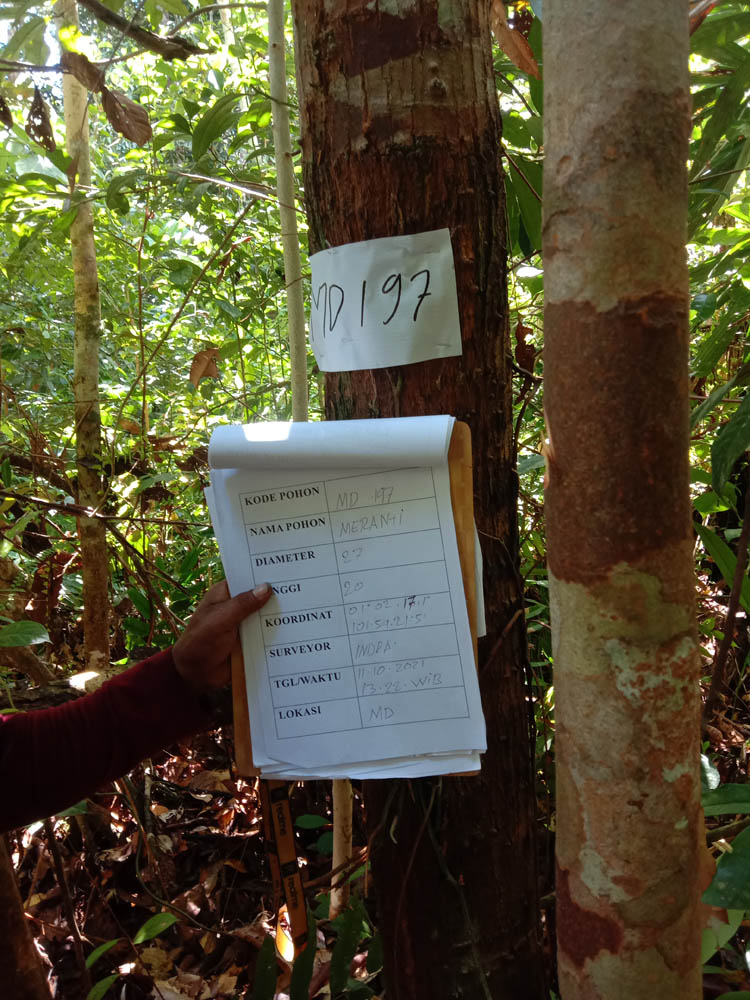 MD 197
KODE POHON MD 197
NAMA POHON MERANTI
DIAMETER 27
NGGI 20
KOORDINAT 01°02'17.1"
101.54.21.5"
SURVEYOR INDRA
TGL/WAKTU 11.10.2021
13.22. WIB
LOKASI MD
realme